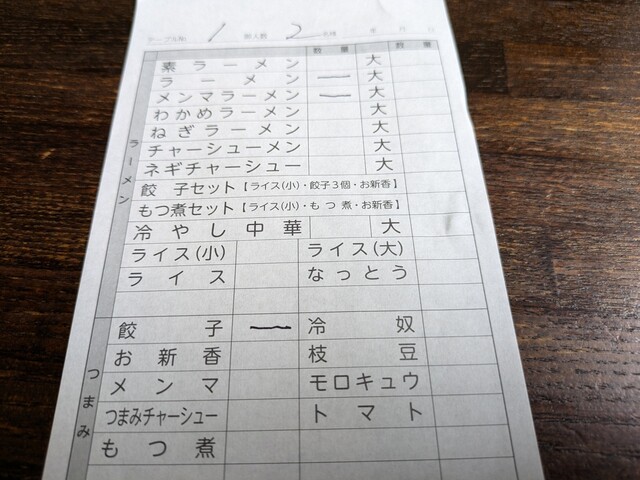 テーブルNo. 1 御人数 2 名様 年 月 日
数 量 数 量
ラーメン
素ラーメン 大
ラーメン 一 大
メンマラーメン 一 大
わかめラーメン 大
ねぎラーメン 大
チャーシューメン 大
ネギチャーシュー 大
餃子セット【ライス(小)・餃子3個・お新香】
もつ煮セット【ライス(小)・もつ煮・お新香】
冷やし中華 大
ライス(小) ライス(大)
ライス なっとう
つまみ
餃子 一 冷奴
お新香 枝豆
メンマ モロキュウ
つまみチャーシュー トマト
もつ煮